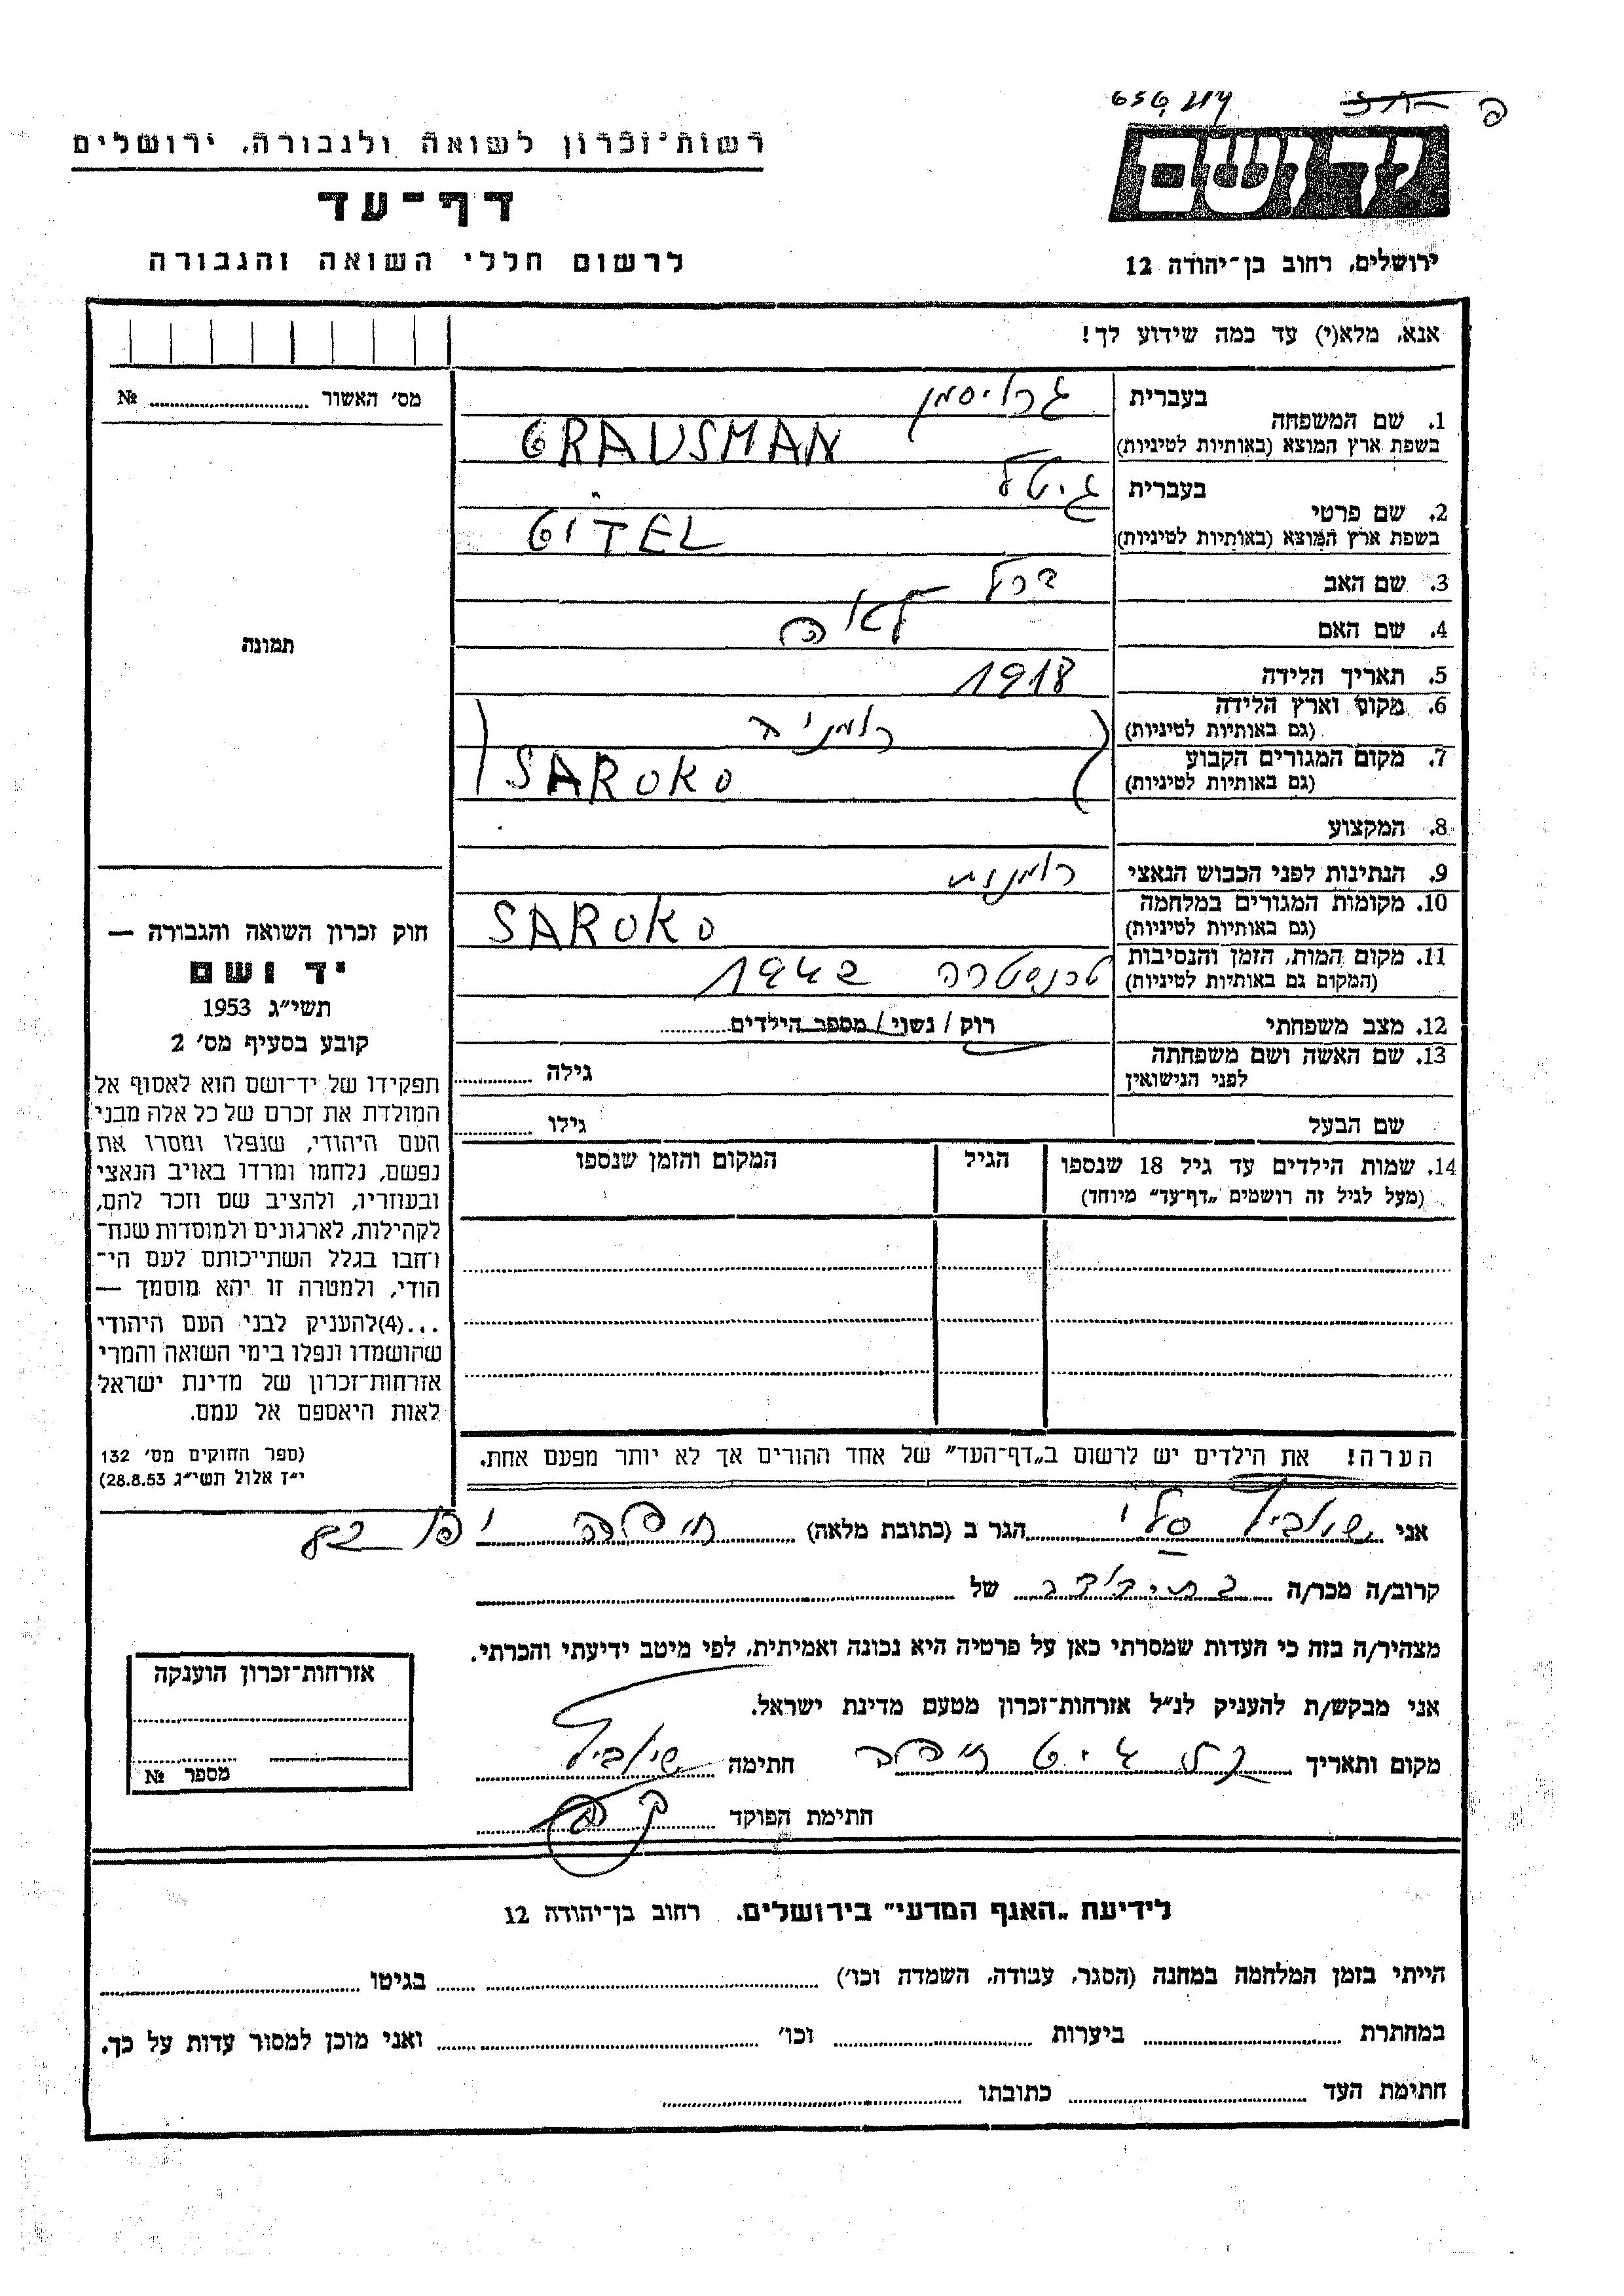 רשות־זכרון לשואה ולגבורה, ירושלים
דף־עד
לרשום חללי השואה והגבורה
יד ושם
ירושלים, רחוב בן־יהודה 12
אנא, מלא(י) עד כמה שידוע לך!
מס׳ האשור № 
1. שם המשפחה
בעברית
גראוסמן
בשפת ארץ המוצא (באותיות לטיניות)
GRAUSMAN
2. שם פרטי
בעברית
גיטל
בשפת ארץ המוצא (באותיות לטיניות)
GITEL
3. שם האב ברל
4. שם האם לאה
5. תאריך הלידה 1918
6. מקום וארץ הלידה
(גם באותיות לטיניות)
רומניה
7. מקום המגורים הקבוע
(גם באותיות לטיניות)
SAROKO
8. המקצוע
9. הנתינות לפני הכבוש הנאצי רומנית
10. מקומות המגורים במלחמה
(גם באותיות לטיניות)
SAROKO
11. מקום המות, הזמן והנסיבות
(המקום גם באותיות לטיניות)
טרנסטריה 1942
12. מצב משפחתי רוק / נשוי / מספר הילדים
13. שם האשה ושם משפחתה
לפני הנישואין
גילה
שם הבעל גילו
14. שמות הילדים עד גיל 18 שנספו
(מעל לגיל זה רושמים „דף־עד״ מיוחד)
הגיל
המקום והזמן שנספו
תמונה
חוק זכרון השואה והגבורה —
יד ושם
תשי״ג 1953
קובע בסעיף מס׳ 2
תפקידו של יד־ושם הוא לאסוף אל
המולדת את זכרם של כל אלה מבני
העם היהודי, שנפלו ומסרו את
נפשם, נלחמו ומרדו באויב הנאצי
ובעוזריו, ולהציב שם וזכר להם,
לקהילות, לארגונים ולמוסדות שנח־
רחבו בגלל השתייכותם לעם הי־
הודי, ולמטרה זו יהא מוסמך —
...(4)להעניק לבני העם היהודי
שהושמדו ונפלו בימי השואה והמרי
אזרחות־זכרון של מדינת ישראל
לאות היאספם אל עמם.
(ספר החוקים מס׳ 132
י״ז אלול תשי״ג 28.8.53)
הערה! את הילדים יש לרשום ב„דף־העד״ של אחד ההורים אך לא יותר מפעם אחת.
אני הגר ב (כתובת מלאה) חיפה יפו 82
קרוב/ה מכר/ה של
מצהיר/ה בזה כי העדות שמסרתי כאן על פרטיה היא נכונה ואמיתית, לפי מיטב ידיעתי והכרתי.
אני מבקש/ת להעניק לנ״ל אזרחות־זכרון מטעם מדינת ישראל.
מקום ותאריך חיפה חתימה
חתימת הפוקד
אזרחות־זכרון הוענקה
מספר №
לידיעת „האגף המדעי״ בירושלים. רחוב בן־יהודה 12
הייתי בזמן המלחמה במחנה (הסגר, עבודה, השמדה וכו׳) בגיטו
במחתרת ביערות וכו׳ ואני מוכן למסור עדות על כך.
חתימת העד כתובתו